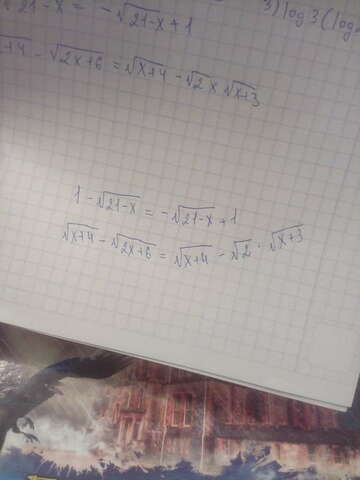 √21-x = -√21-x + 1
3) log3(log
x+4 - √2x+6 = √x+4 - √2 x √x+3
1 - √21-x = -√21-x + 1
√x+4 - √2x+6 = √x+4 - √2 · √x+3